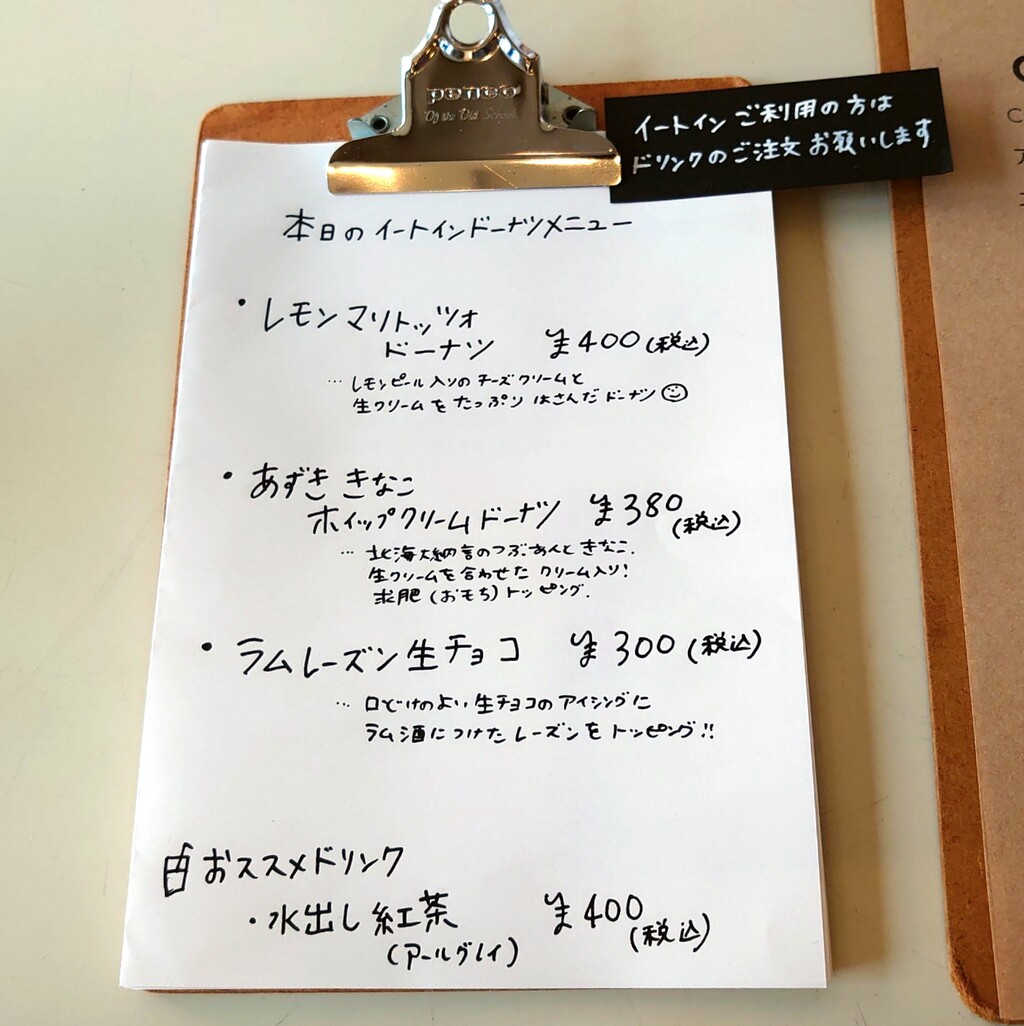 penco
Of the Old School
イートインご利用の方は
ドリンクのご注文お願いします
本日のイートインドーナツメニュー
・レモンマリトッツォ
ドーナツ ¥400(税込)
… レモンピール入りのチーズクリームと
生クリームをたっぷりはさんだドーナツ
・あずき きなこ
ホイップクリームドーナツ ¥380
(税込)
… 北海大納言のつぶあんときなこ、
生クリームを合わせたクリーム入り!
求肥(おもち)トッピング。
・ラムレーズン生チョコ ¥300(税込)
… 口どけのよい生チョコのアイシングに
ラム酒につけたレーズンをトッピング!!
おススメドリンク
・水出し紅茶 ¥400
(アールグレイ) (税込)